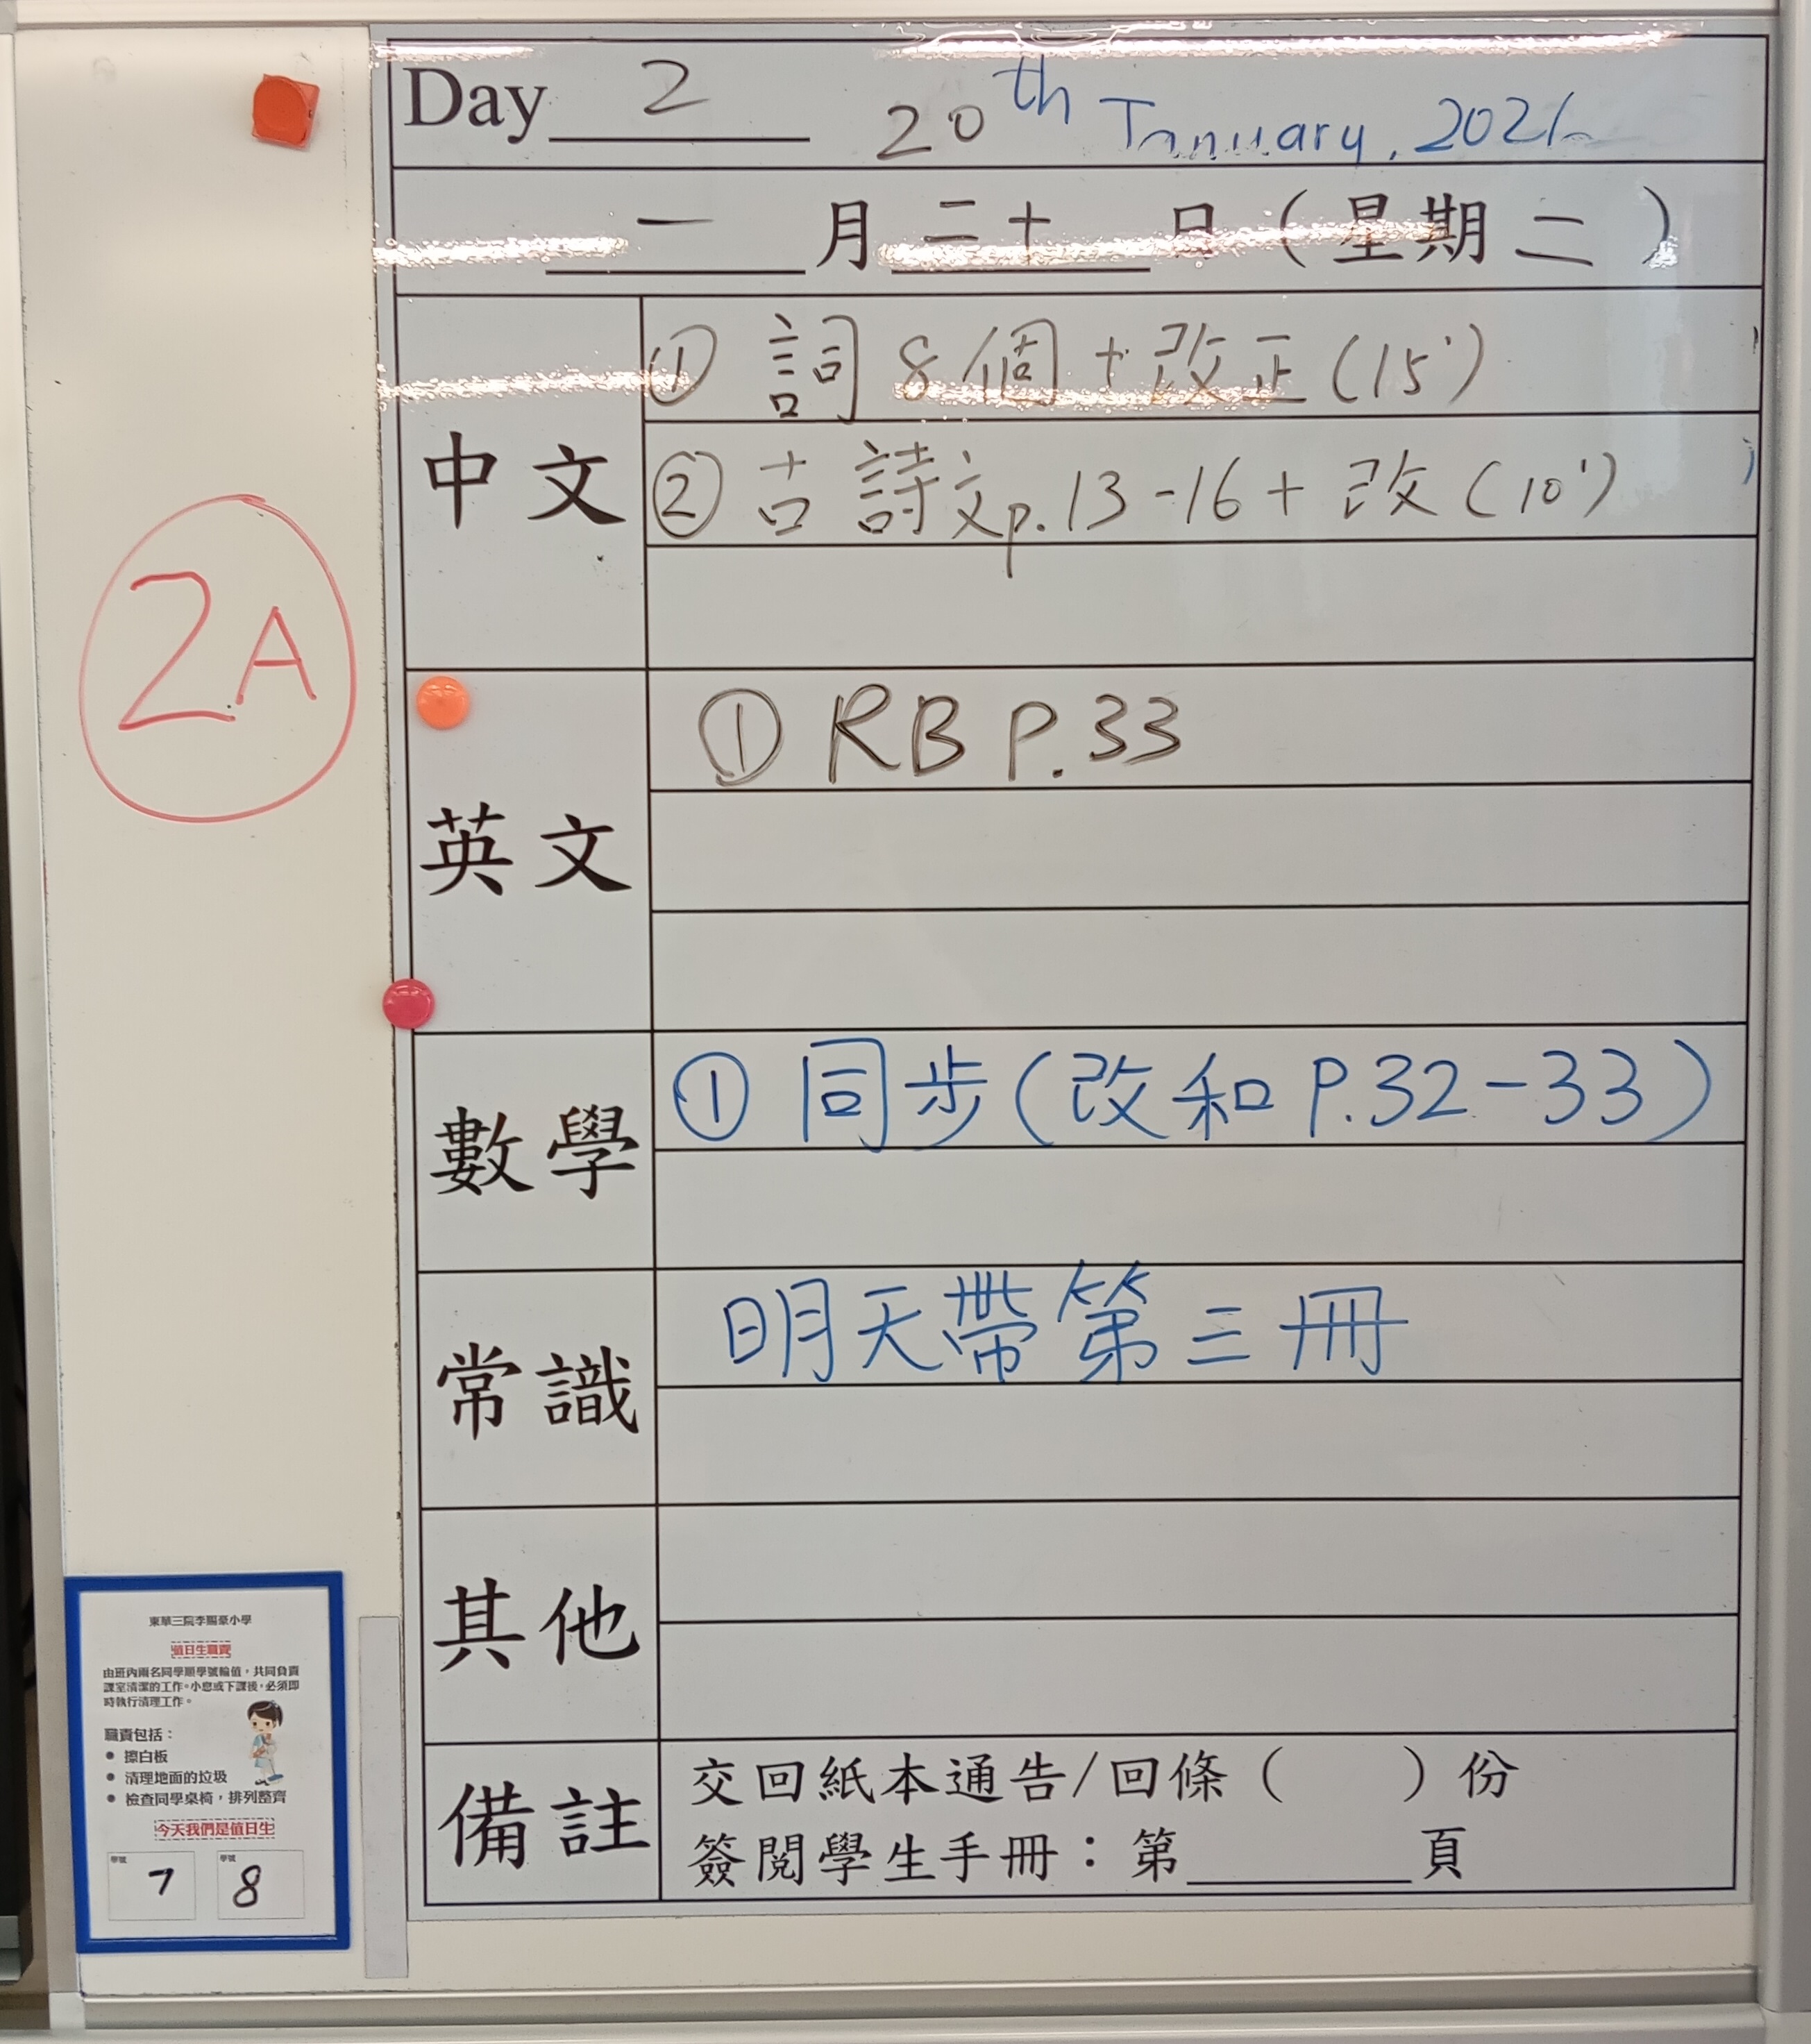 Day 2 20th January, 202
一月二十日(星期二)
中文
① 詞8個+改正(15')
② 古詩文p.13-16+改(10')
2A
英文
① RB P.33
數學
① 同步(改和P.32-33)
常識
明天帶第三冊
其他
備註
交回紙本通告/回條( )份
簽閱學生手冊:第______頁
東華三院李賜豪小學
值日生職責
由班內兩名同學順學號輪值,共同負責
課室清潔的工作。小息或下課後,必須即
時執行清理工作。
職責包括:
● 擦白板
● 清理地面的垃圾
● 檢查同學桌椅,排列整齊
今天我們是值日生
學號 7 學號 8